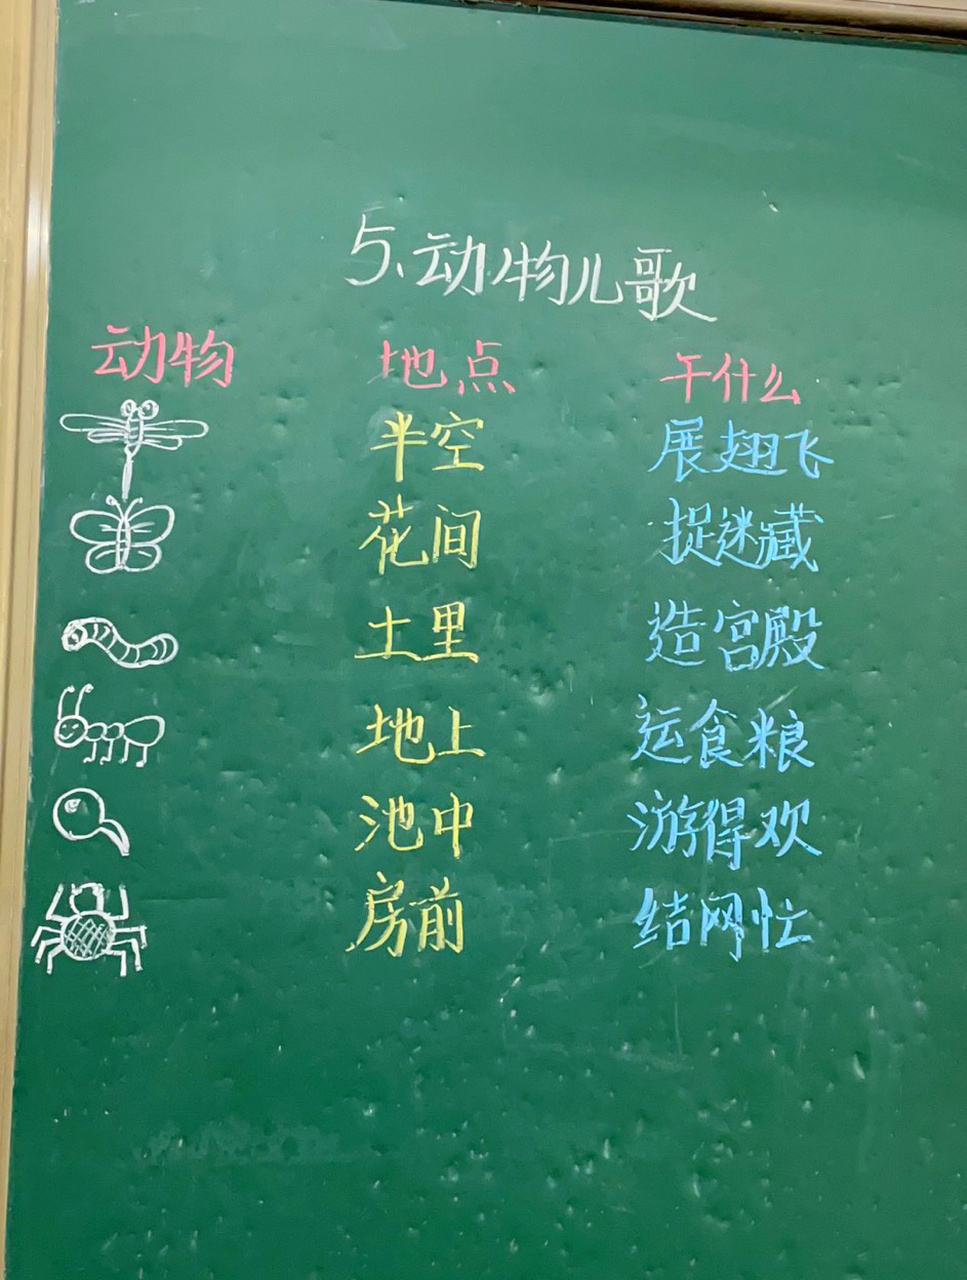 5、动物儿歌
动物 地点 干什么
半空 展翅飞
花间 捉迷藏
土里 造宫殿
地上 运食粮
池中 游得欢
房前 结网忙